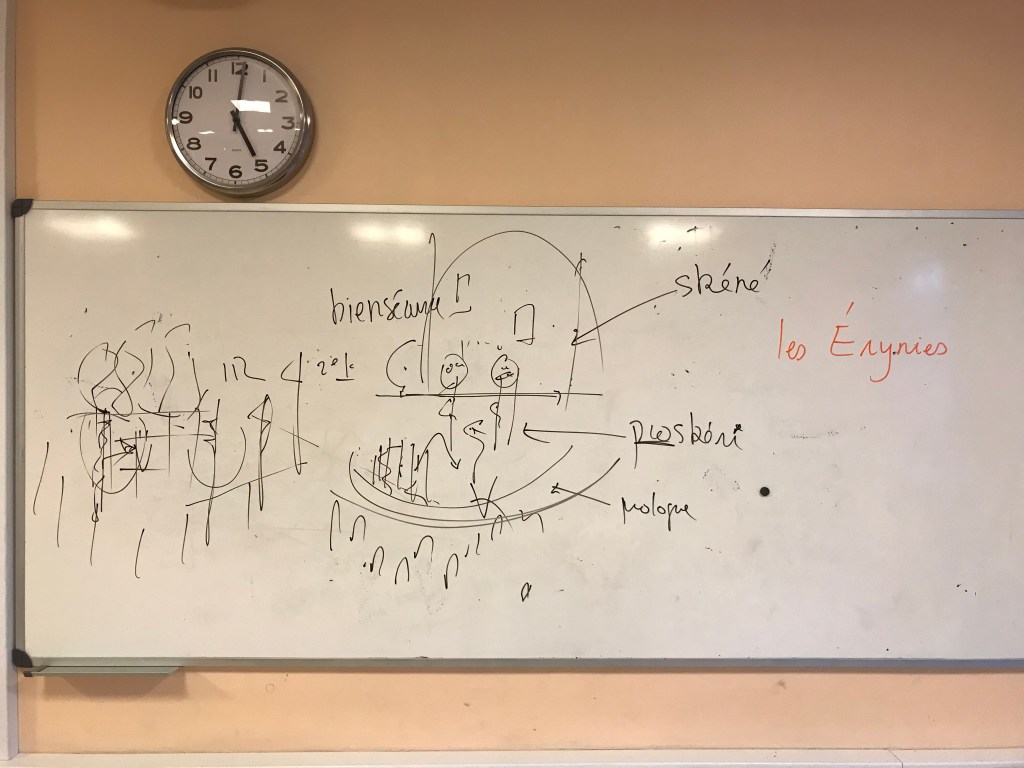 12
1
2
3
4
5
6
7
8
9
10
11
bienséance
skéné
les Érynies
proskéni
prologue